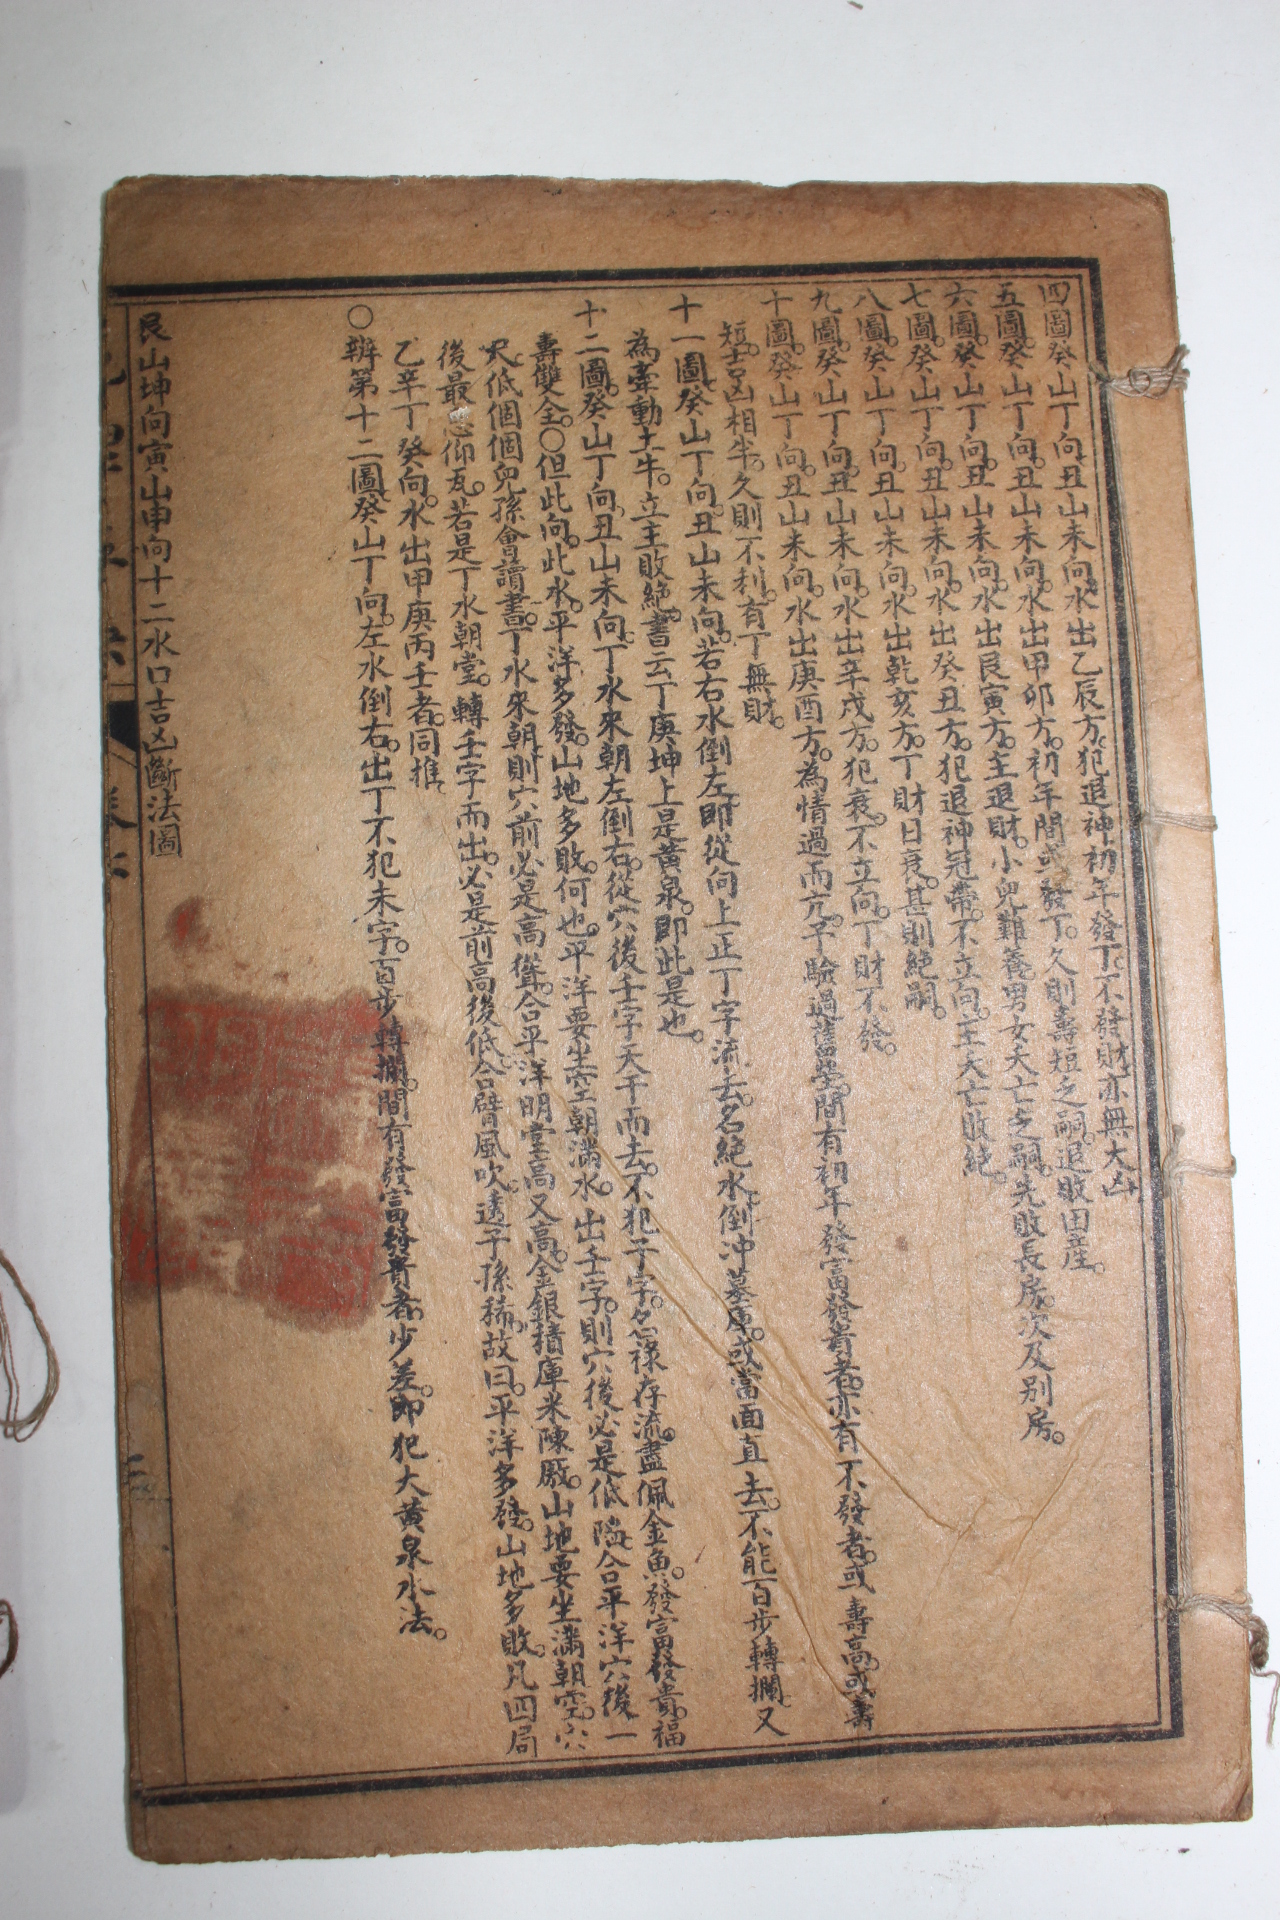 四圖癸山丁向丑山未向水出乙辰方犯退神初年發丁不發財亦無大凶
五圖癸山丁向丑山未向水出甲卯方初年間或發丁久則壽短乏嗣退敗田產
六圖癸山丁向丑山未向水出艮寅方主退財小兒難養男女夭亡乏嗣先敗長房次及別房
七圖癸山丁向丑山未向水出癸丑方犯退神冠帶不立向主夭亡敗絕
八圖癸山丁向丑山未向水出乾亥方丁財日衰甚則絕嗣
九圖癸山丁向丑山未向水出辛戌方犯衰不立向丁財不發
十圖癸山丁向丑山未向水出庚酉方為情過而亢予驗過舊塋間有初年發富發貴者亦有不發者或壽高或壽
短吉凶相半久則不利有丁無財
十一圖癸山丁向丑山未向若右水倒左即從向上正丁字流去名絕水倒冲墓庫或當面直去不能百步轉攔又
為牽動土牛立主敗絕書云丁庚坤上是黃泉即此是也
十二圖癸山丁向丑山未向丁水來朝左倒右從穴後壬字天干而去不犯子字名祿存流盡佩金魚發富發貴福
壽雙全〇但此向此水平洋多發山地多敗何也平洋要坐空朝滿水出壬字則穴後必是低陷合平洋穴後一
尺低個個兒孫會讀書丁水來朝則穴前必是高聳合平洋明堂高又高金銀積庫米陳廒山地要坐滿朝空穴
後最忌仰瓦若是丁水朝堂轉壬字而出必是前高後低合臂風吹透子孫稀故曰平洋多發山地多敗凡四局
乙辛丁癸向水出甲庚丙壬者同推
〇辨第十二圖癸山丁向左水倒右出丁不犯未字百步轉攔間有發富發貴者少差即犯大黃泉水法
艮山坤向寅山申向十二水口吉凶斷法圖